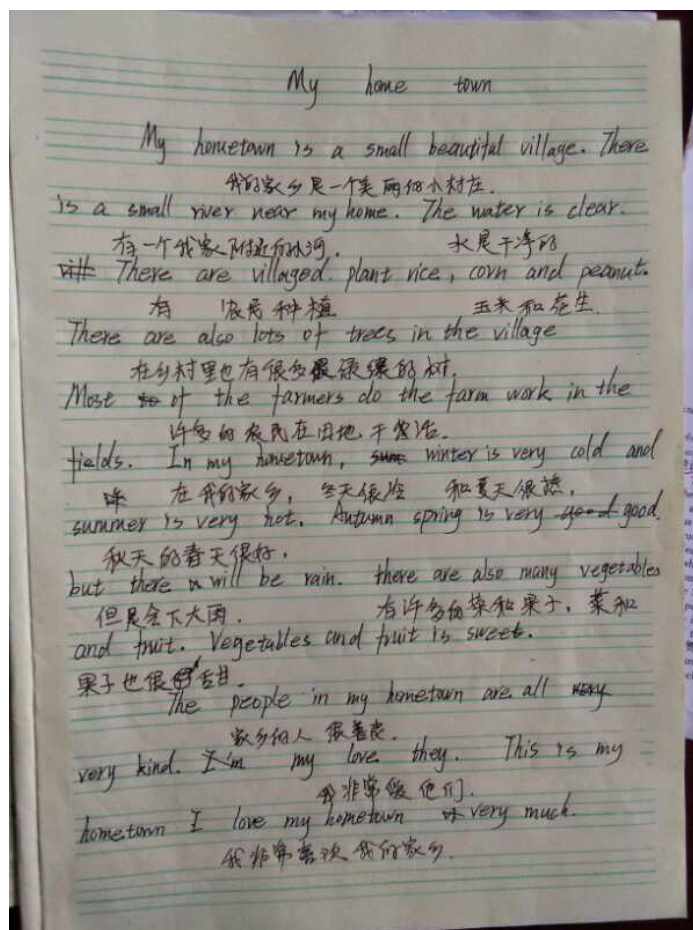 My home town
My hometown is a small beautiful village. There
我的家乡是一个美丽的小村庄.
is a small river near my home. The water is clear.
有一个我家附近的小河. 水是干净的
There are villaged plant rice, corn and peanut.
有 农民种植 玉米和花生.
There are also lots of trees in the village
在乡村里也有很多绿绿的树.
Most of the farmers do the farm work in the
许多的农民在田地干农活.
fields. In my hometown, winter is very cold and
在我的家乡, 冬天很冷 和夏天很热,
summer is very hot. Autumn spring is very good.
秋天的春天很好,
but there will be rain. there are also many vegetables
但是会下大雨. 有许多的菜和果子, 菜和
and fruit. Vegetables and fruit is sweet.
果子也很甜.
The people in my hometown are all
家乡的人 很善良.
very kind. I'm my love they. This is my
我非常爱他们.
hometown I love my hometown very much.
我非常喜欢我的家乡.